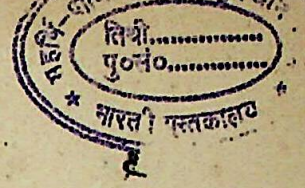 महर्षि-
तिथी................
पु०सं०................
* भारती पुस्तकालय *